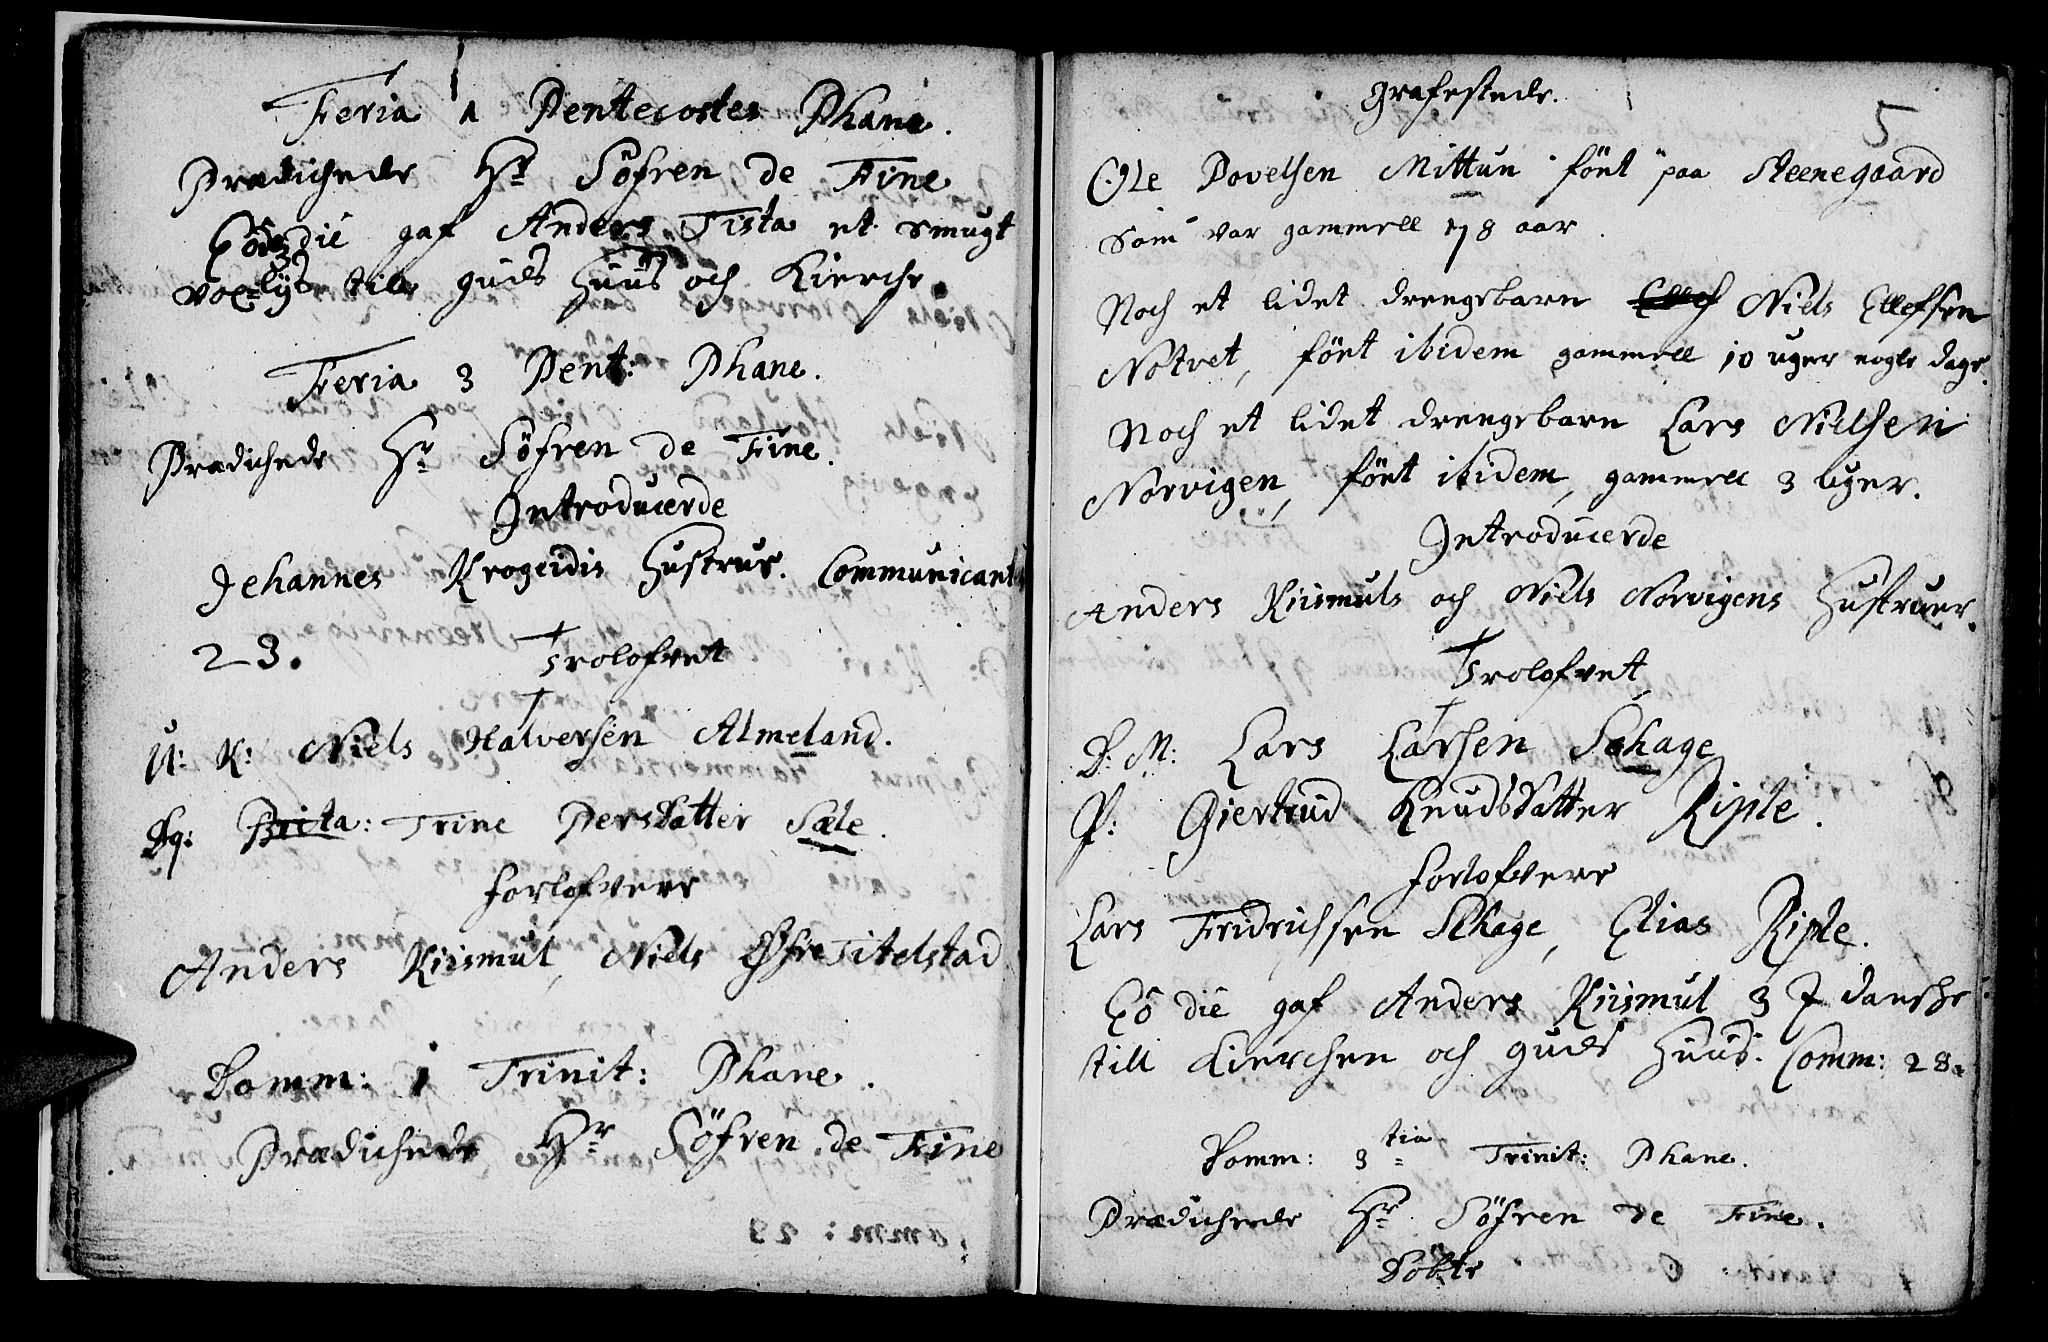 Feria 1 Pentecostes Phane.
Prædichede Hr Söfren de Fine
Eodem die gaf Anders Tista et smugt
vox-lÿs till guds Huus och Kierche.
Feria 3 Pent: Phane.
Prædichede Hr Söfren de Fine.
Introducerde
Jehannes Krogeidis Hustrue. Communicant
23.
Trolofvet
U: K: Niels Halversen Almeland.
Pq: Brita: Trine Persdatter Sæle.
forlofvere
Anders Kiismul, Niels Øfre Titelstad
Domm: 1 Trinit: Phane.
Prædichede Hr Söfren de Fine
5
Grafestede.
Ole Povelsen Mittun födt paa Steenegaard
som var gammell 78 aar.
Noch et lidet drengebarn Ellef Niels Ellefsen
Nötvet, födt ibidem gammell 10 uger nogle dage.
Noch et lidet drengebarn Lars Nielsen
Norvigen, födt ibidem, gammell 3 uger.
Introducerde
Anders Kiismuls och Niels Norvigens Hustruer.
Trolofvet
D: M: Lars Larsen Schage
P: Giertrud Knudsdatter Riple.
forlofvere
Lars Fridrichsen Skage, Elias Riple.
Eo die gaf Anders Kiismul 3 danske
till Kierchen och guds Huus. Comm: 28.
Domm: 3tia Trinit: Phane.
Prædichede Hr Söfren de Fine.
Döbte